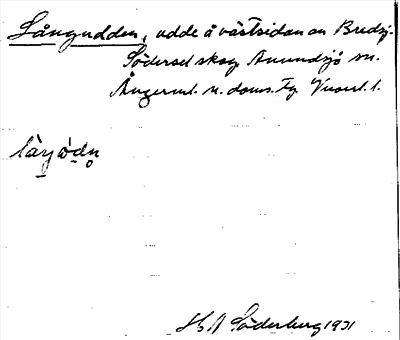 Långudden, udde å västsidan av Bredsj.
Södersel skog Anundsjö sn.
Ångerml. n. doms. tg Vnorrl. l.
Söderberg 1931